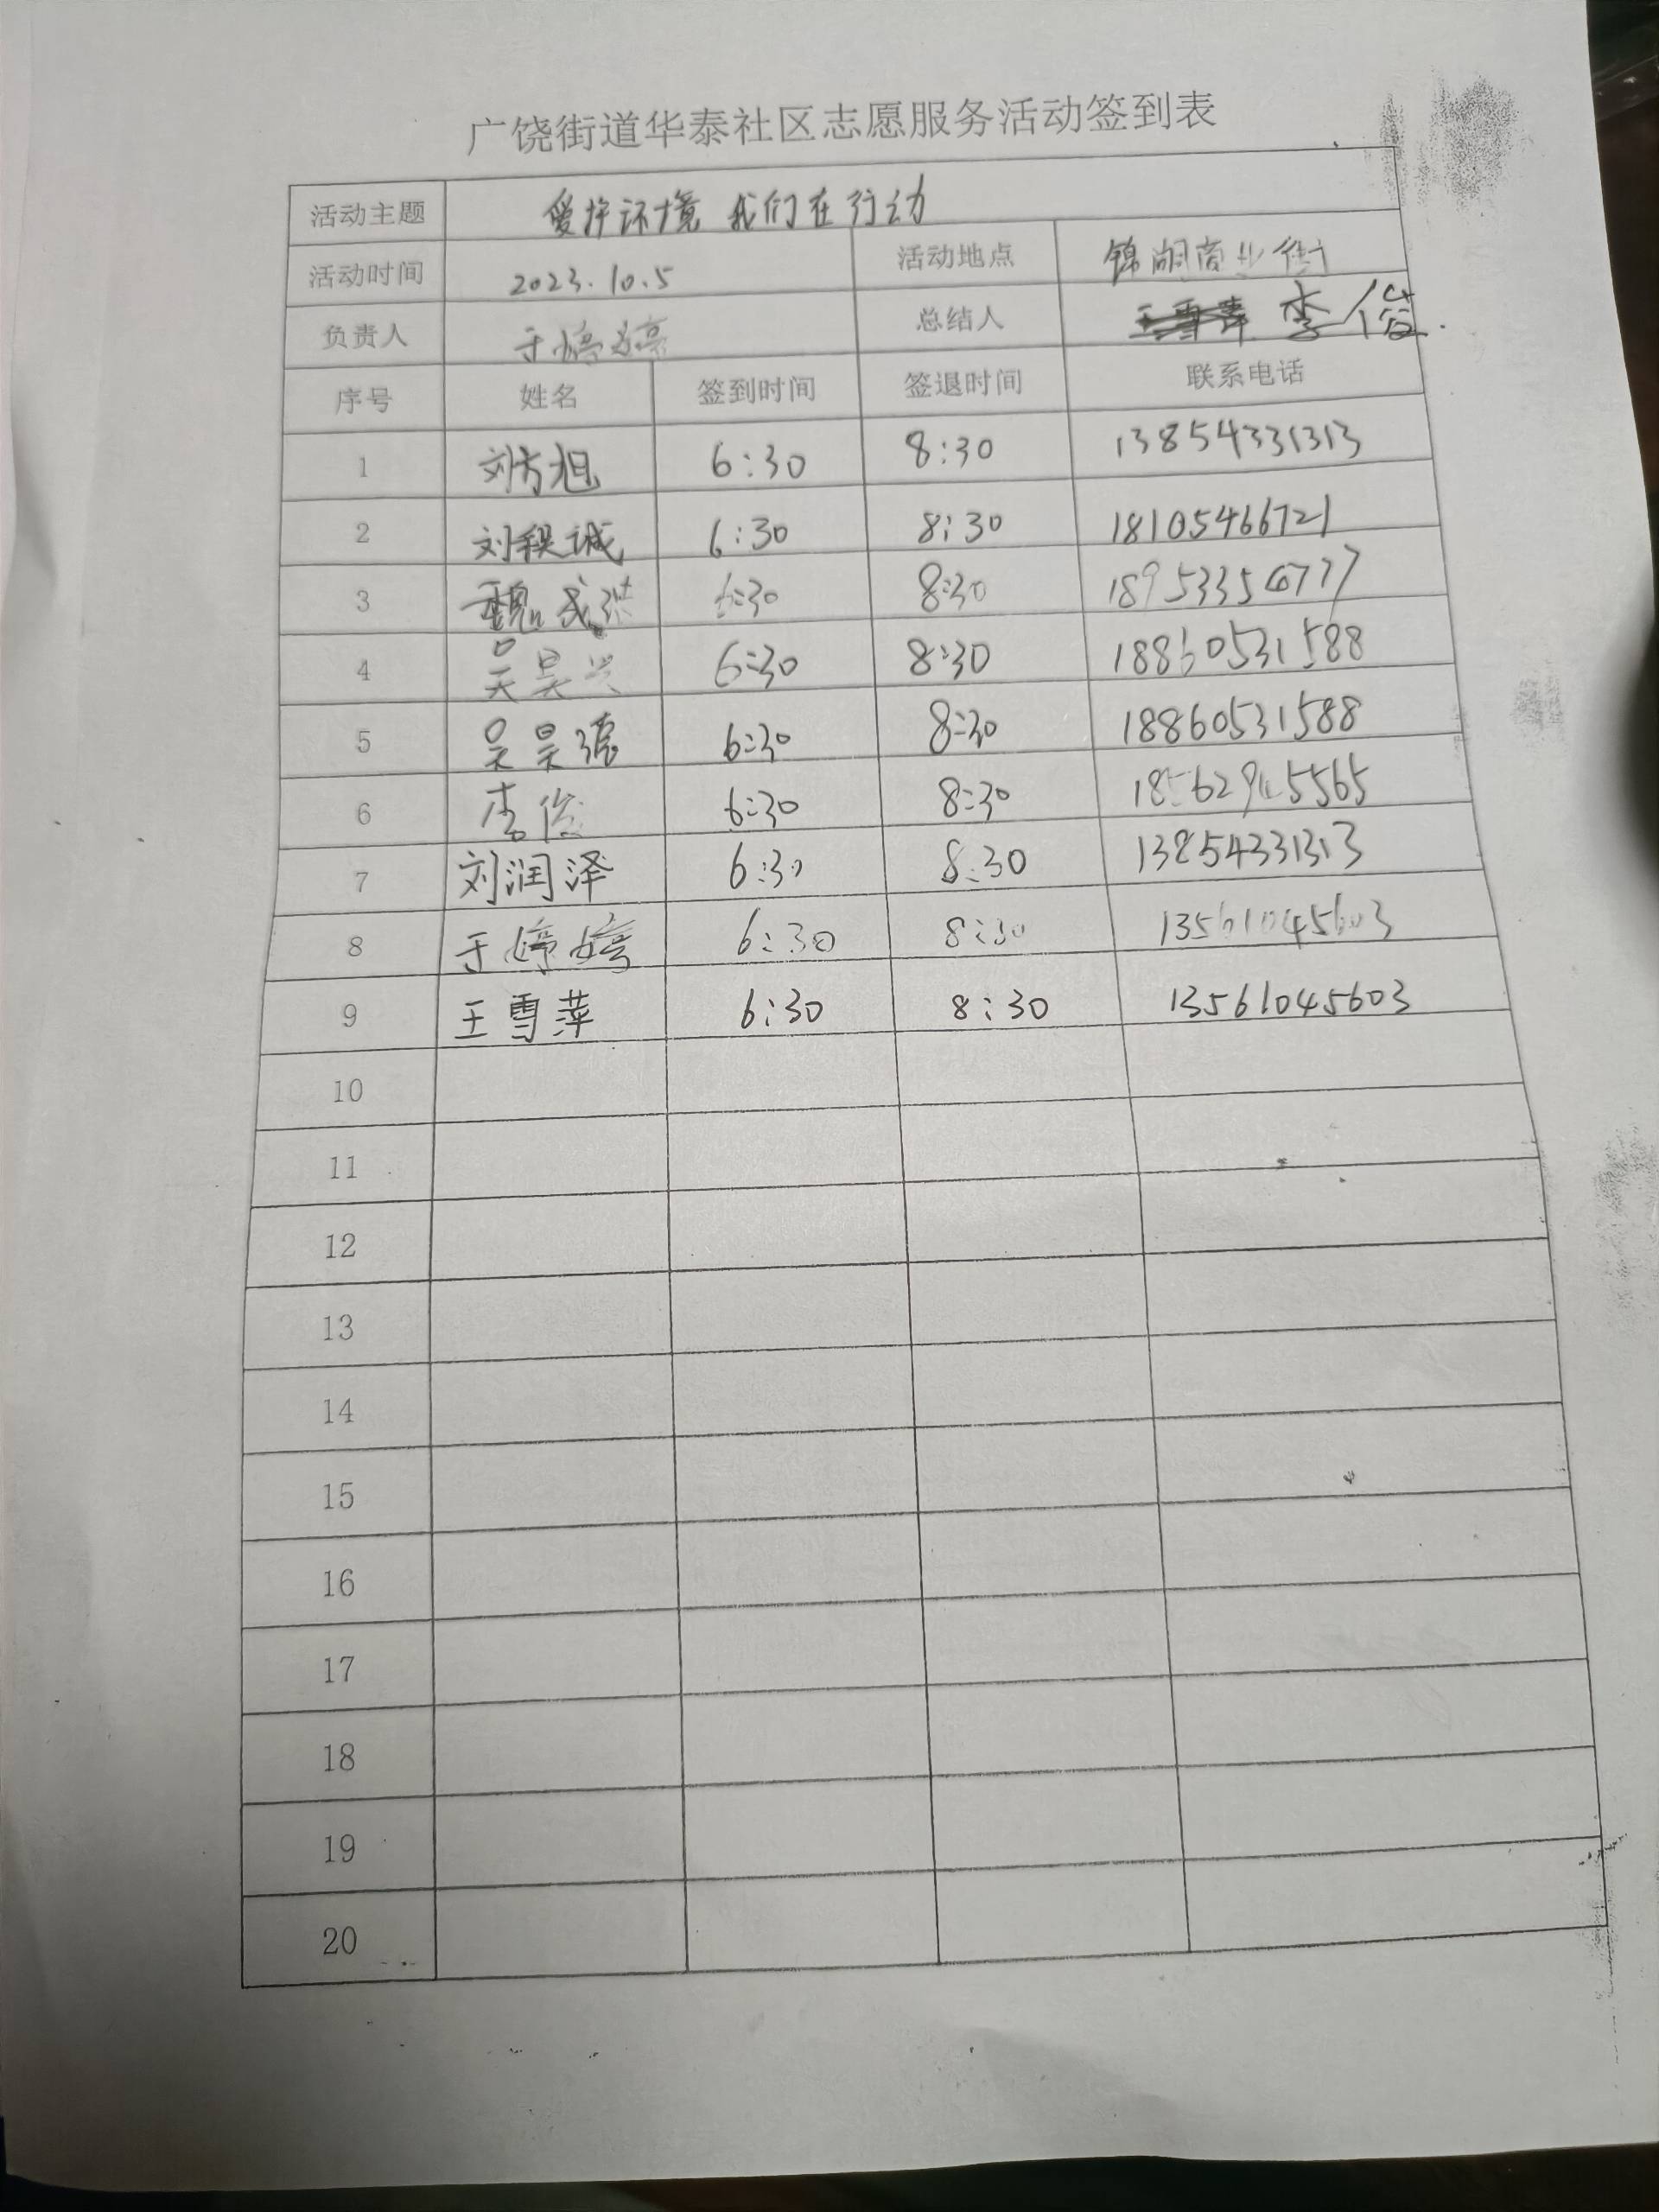 广饶街道华泰社区志愿服务活动签到表
活动主题 爱护环境 我们在行动
活动时间 2023.10.5 活动地点 锦湖商业街
负责人 于婷婷 总结人 王雪萍 李俊
序号 姓名 签到时间 签退时间 联系电话
1 刘方旭 6:30 8:30 13854331313
2 刘锞诚 6:30 8:30 18105466721
3 魏 6:30 8:30
4 吴昊兴 6:30 8:30 18860531588
5 吴昊德 6:30 8:30 18860531588
6 李俊 6:30 8:30
7 刘润泽 6:30 8:30 13854331313
8 于婷婷 6:30 8:30 13561045603
9 王雪萍 6:30 8:30 13561045603
10
11
12
13
14
15
16
17
18
19
20